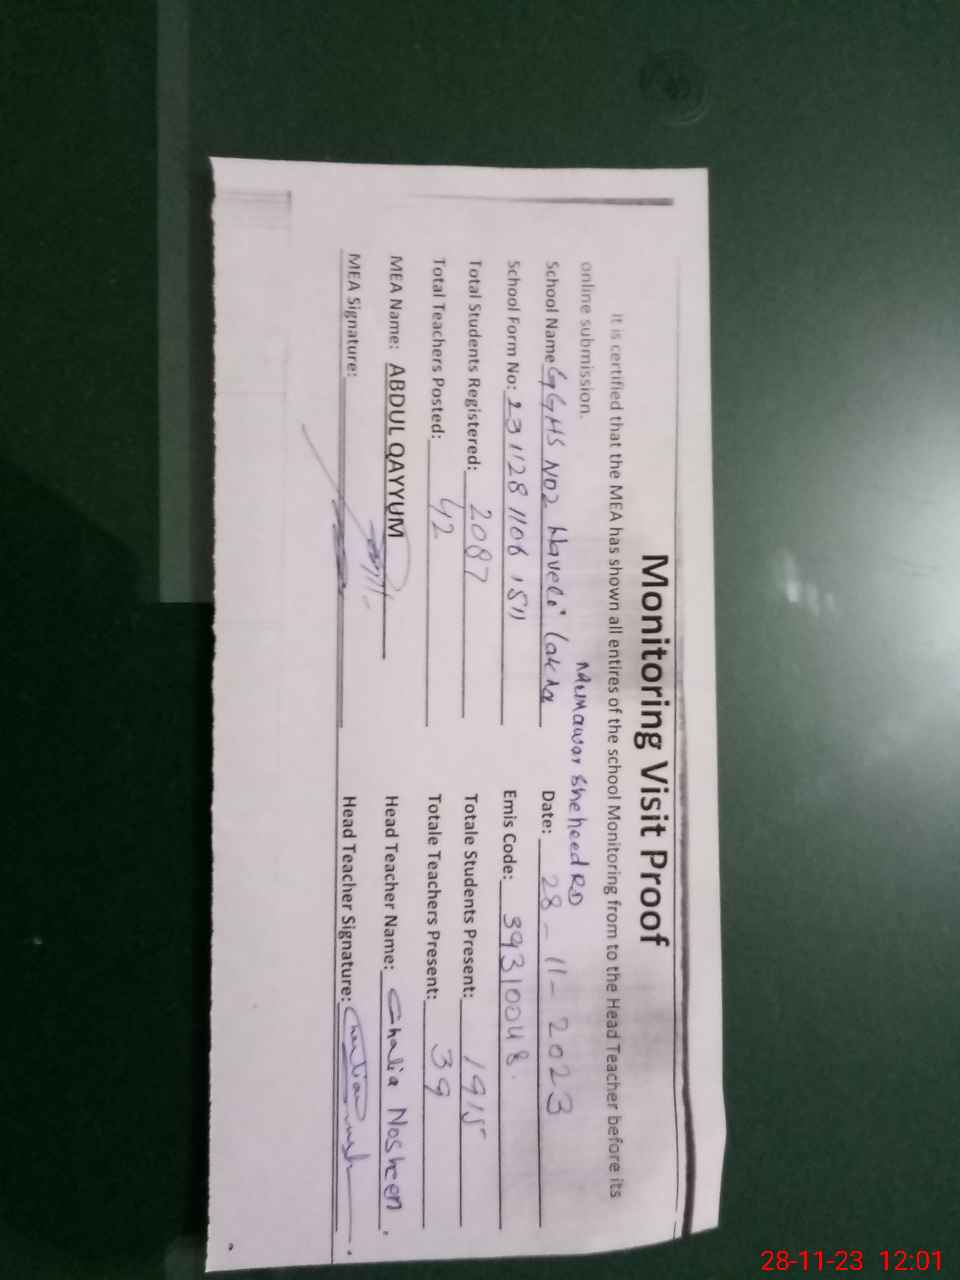 Monitoring Visit Proof
It is certified that the MEA has shown all entires of the school Monitoring from to the Head Teacher before its
online submission.
Munawar Sheheed RD
School Name GGHS NO2 Haveli Lakha Date: 28-11-2023
School Form No: 231128 1106 1511 Emis Code: 39310048.
Total Students Registered: 2087 Totale Students Present: 1915
Total Teachers Posted: 42 Totale Teachers Present: 39
MEA Name: ABDUL QAYYUM Head Teacher Name: Ghalia Nosheen.
MEA Signature: Head Teacher Signature:
28-11-23 12:01